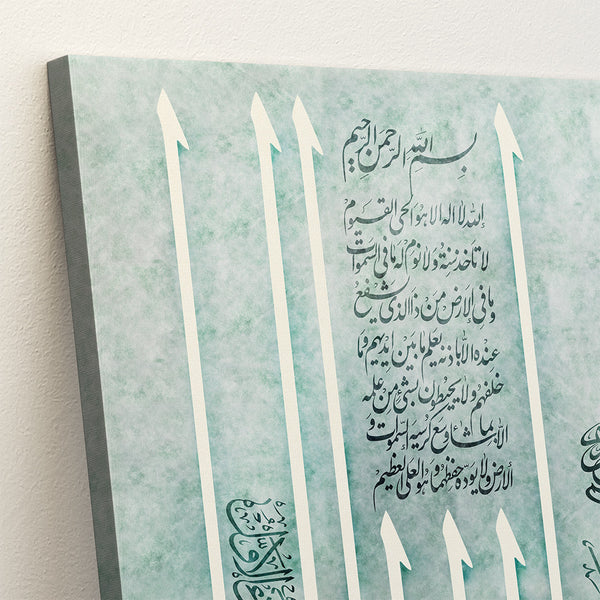 بسم الله الرحمن الرحيم
الله لا اله الا هو الحي القيوم
لا تاخذه سنة ولا نوم له ما في السموات
وما في الارض من ذا الذي يشفع
عنده الا باذنه يعلم ما بين ايديهم وما
خلفهم ولا يحيطون بشئ من علمه
الا بما شاء وسع كرسيه السموات و
الارض ولا يوده حفظهما وهو العلي العظيم